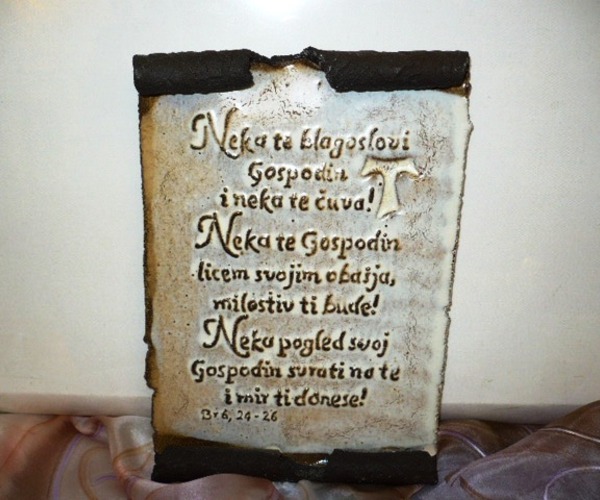 Neka te blagoslovi
Gospodin
i neka te čuva!
Neka te Gospodin
licem svojim obasja,
milostiv ti bude!
Neka pogled svoj
Gospodin svrati na te
i mir ti donese!
Br 6, 24-26